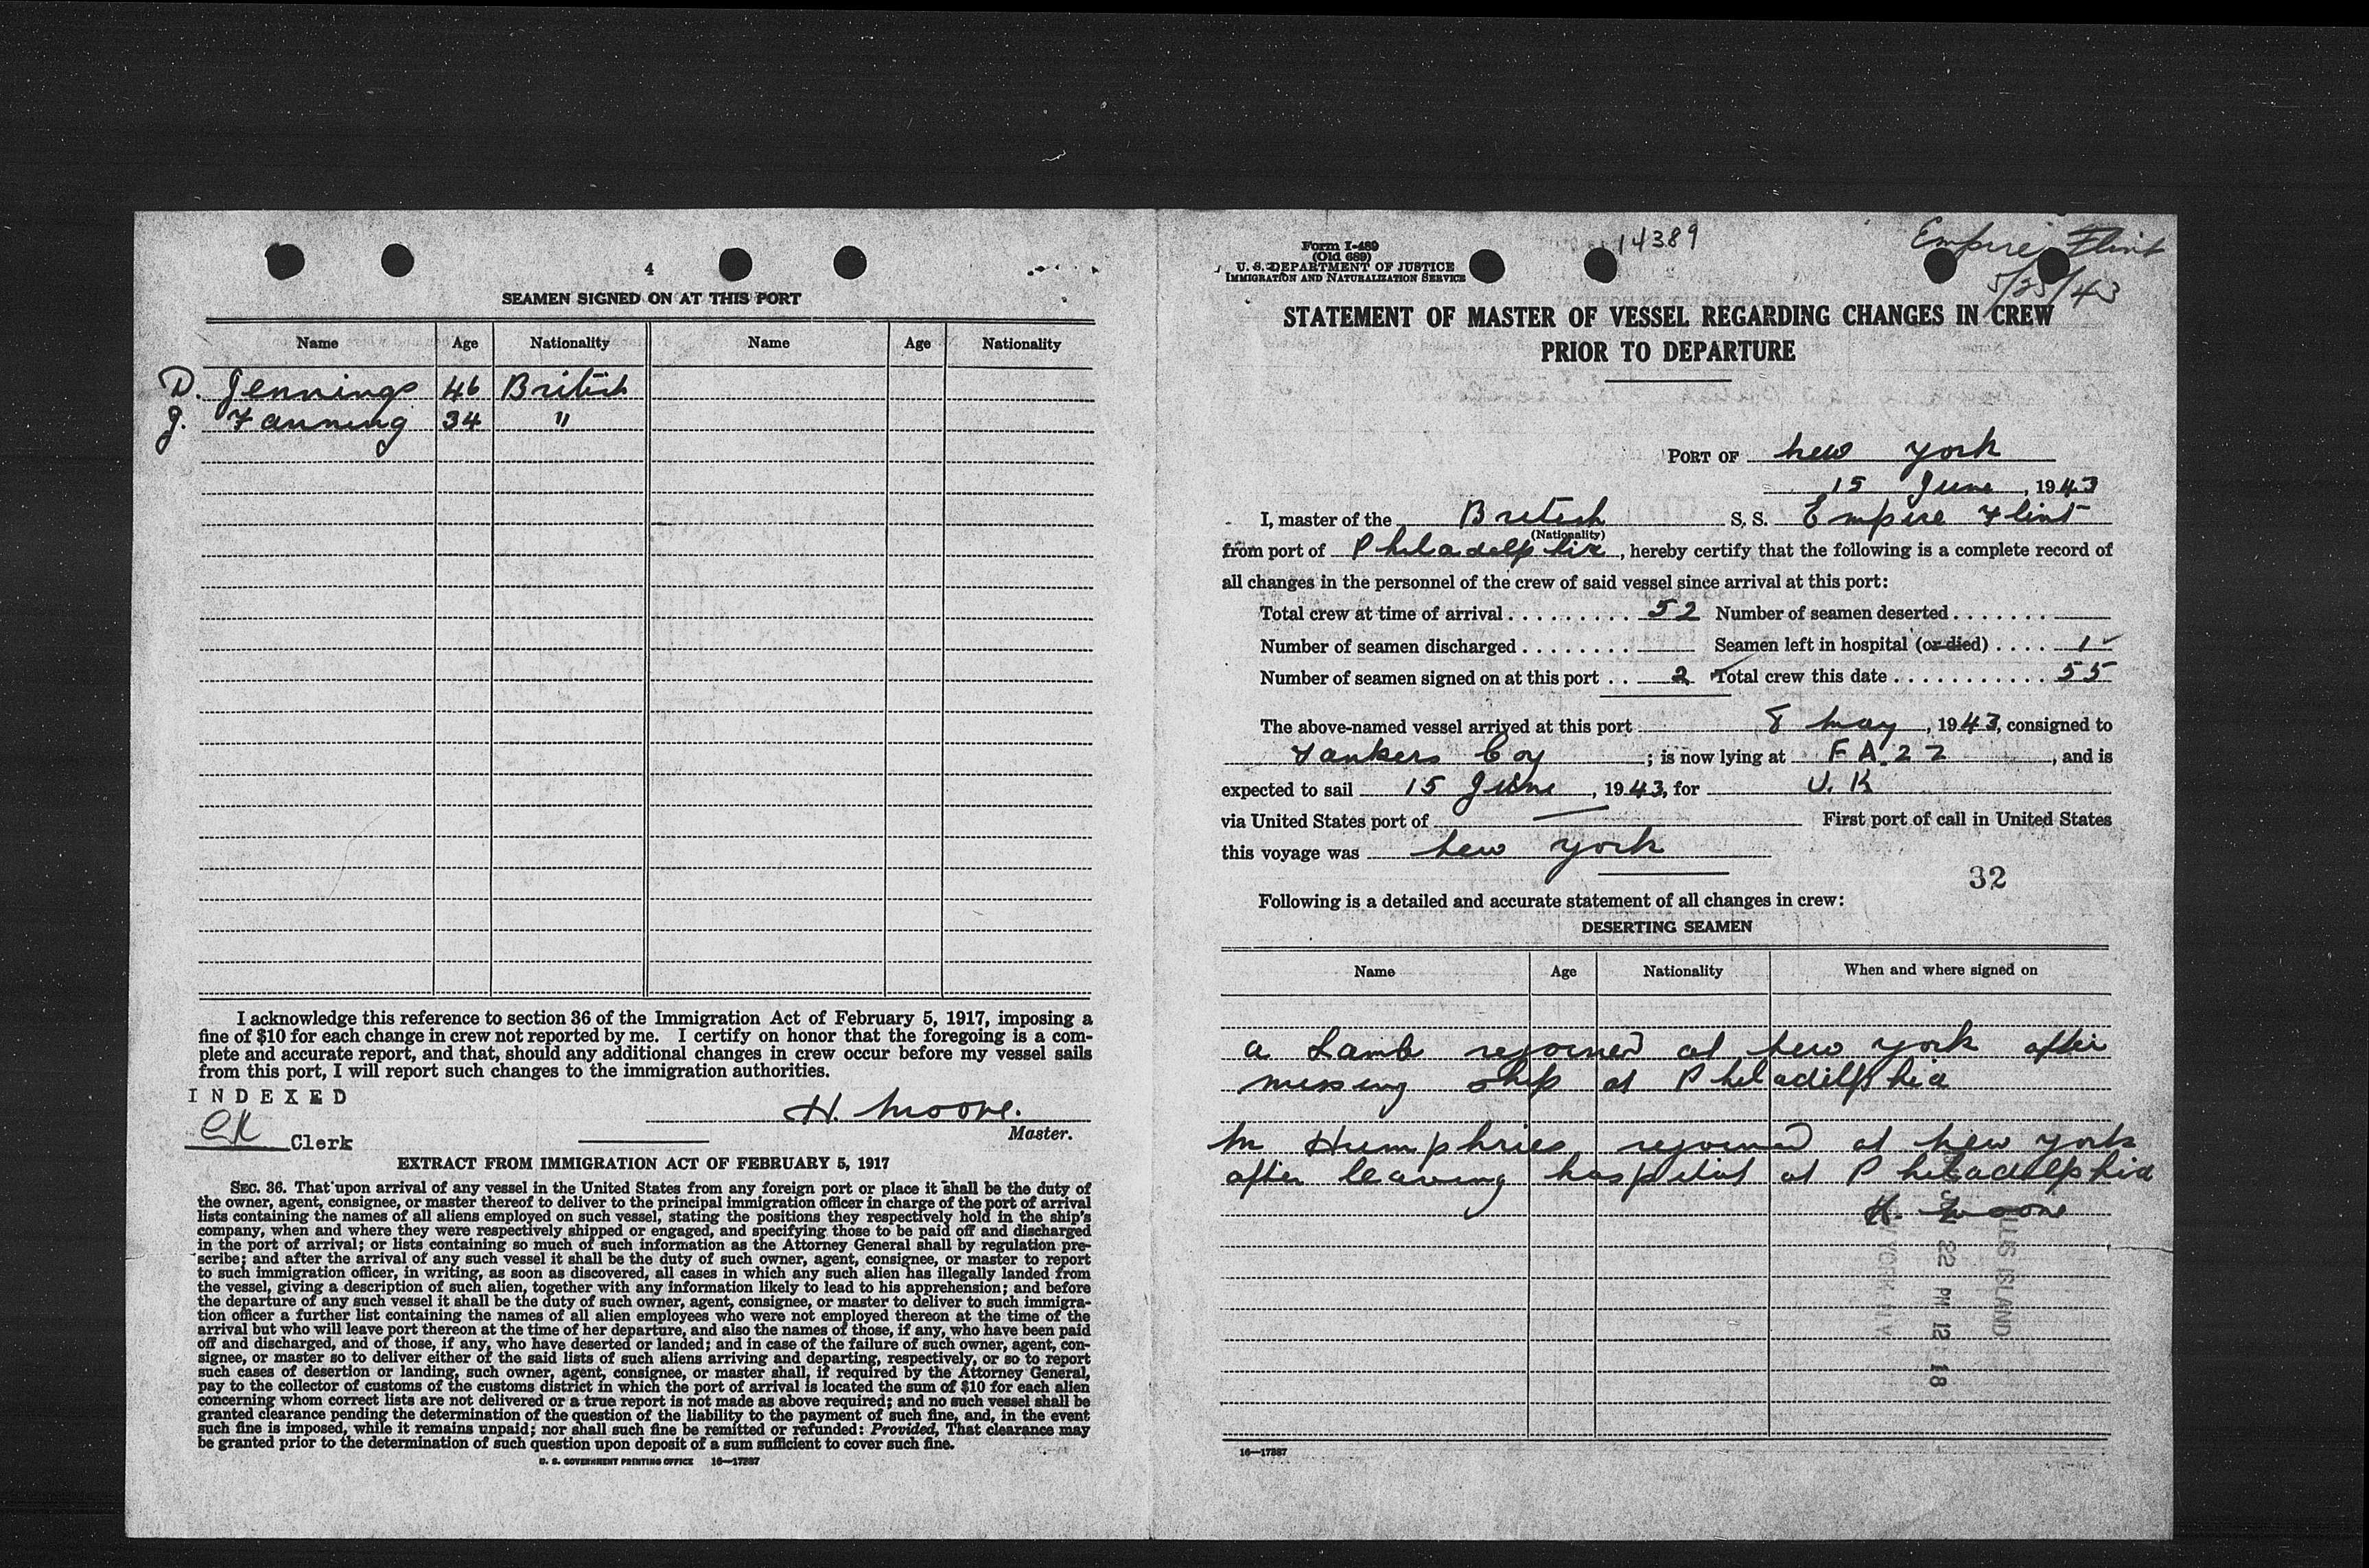 4
SEAMEN SIGNED ON AT THIS PORT
Name Age Nationality Name Age Nationality
D. Jennings 46 British
J. Fanning 34 "
I acknowledge this reference to section 36 of the Immigration Act of February 5, 1917, imposing a
fine of $10 for each change in crew not reported by me. I certify on honor that the foregoing is a com-
plete and accurate report, and that, should any additional changes in crew occur before my vessel sails
from this port, I will report such changes to the immigration authorities.
INDEXED
H. Moore.
Master.
CK Clerk
EXTRACT FROM IMMIGRATION ACT OF FEBRUARY 5, 1917
SEC. 36. That upon arrival of any vessel in the United States from any foreign port or place it shall be the duty of
the owner, agent, consignee, or master thereof to deliver to the principal immigration officer in charge of the port of arrival
lists containing the names of all aliens employed on such vessel, stating the positions they respectively hold in the ship's
company, when and where they were respectively shipped or engaged, and specifying those to be paid off and discharged
in the port of arrival; or lists containing so much of such information as the Attorney General shall by regulation pre-
scribe; and after the arrival of any such vessel it shall be the duty of such owner, agent, consignee, or master to report
to such immigration officer, in writing, as soon as discovered, all cases in which any such alien has illegally landed from
the vessel, giving a description of such alien, together with any information likely to lead to his apprehension; and before
the departure of any such vessel it shall be the duty of such owner, agent, consignee, or master to deliver to such immigra-
tion officer a further list containing the names of all alien employees who were not employed thereon at the time of the
arrival but who will leave port thereon at the time of her departure, and also the names of those, if any, who have been paid
off and discharged, and of those, if any, who have deserted or landed; and in case of the failure of such owner, agent, con-
signee, or master so to deliver either of the said lists of such aliens arriving and departing, respectively, or so to report
such cases of desertion or landing, such owner, agent, consignee, or master shall, if required by the Attorney General,
pay to the collector of customs of the customs district in which the port of arrival is located the sum of $10 for each alien
concerning whom correct lists are not delivered or a true report is not made as above required; and no such vessel shall be
granted clearance pending the determination of the question of the liability to the payment of such fine, and, in the event
such fine is imposed, while it remains unpaid; nor shall such fine be remitted or refunded: Provided, That clearance may
be granted prior to the determination of such question upon deposit of a sum sufficient to cover such fine.
U. S. GOVERNMENT PRINTING OFFICE 16—17887
Form I-489
(Old 689)
U. S. DEPARTMENT OF JUSTICE
IMMIGRATION AND NATURALIZATION SERVICE
14389
Empire Flint
5/25/43
STATEMENT OF MASTER OF VESSEL REGARDING CHANGES IN CREW
PRIOR TO DEPARTURE
PORT OF New York
15 June, 1943
I, master of the British S. S. Empire Flint
(Nationality)
from port of Philadelphia, hereby certify that the following is a complete record of
all changes in the personnel of the crew of said vessel since arrival at this port:
Total crew at time of arrival 52 Number of seamen deserted
Number of seamen discharged Seamen left in hospital (or died) 1
Number of seamen signed on at this port 2 Total crew this date 55
The above-named vessel arrived at this port 8 May, 1943, consigned to
Tankers Coy; is now lying at FA. 22, and is
expected to sail 15 June, 1943, for U. K
via United States port of — First port of call in United States
this voyage was New York
32
Following is a detailed and accurate statement of all changes in crew:
DESERTING SEAMEN
Name Age Nationality When and where signed on
A Lamb rejoined at New York after
missing ship at Philadelphia
M Humphries rejoined at New York
after leaving hospital at Philadelphia
H. Moore
22 PM 12 18
16—17887